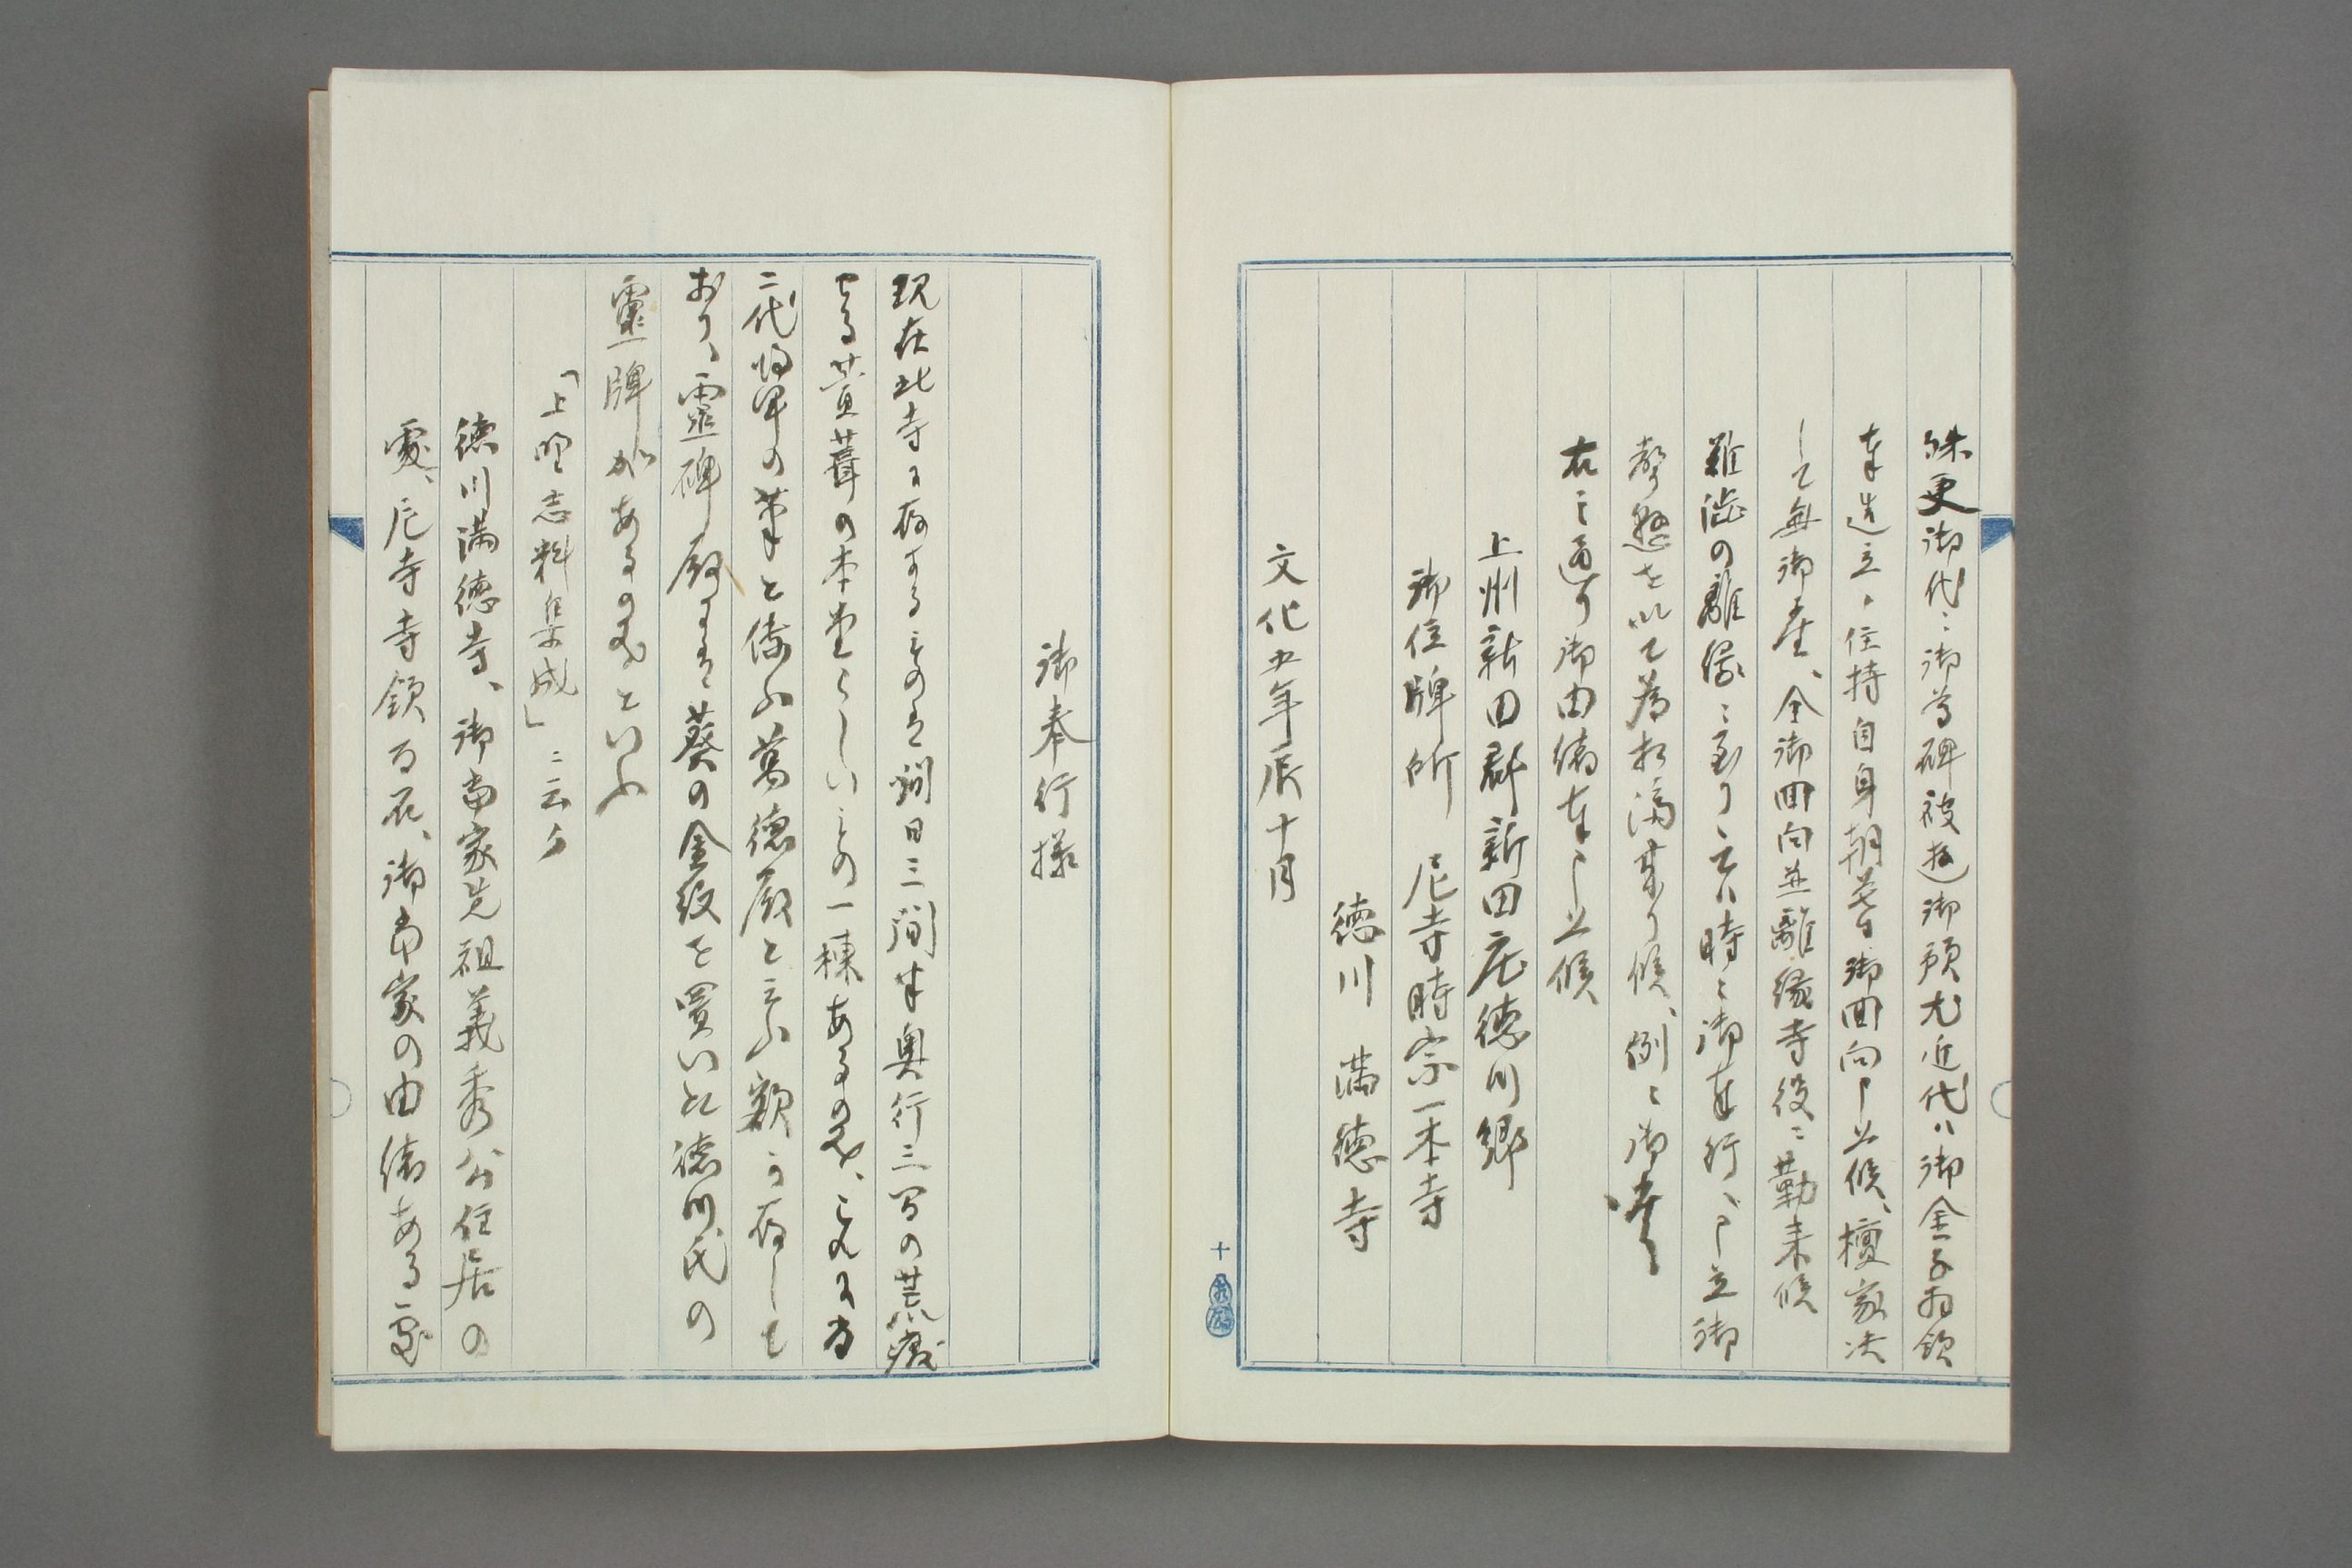 殊更御代々御尊碑被遊御預尤近代ハ御金子頂戴
奉造立、住持自身朝暮御回向申上候、檀家決
して無御座、全御回向並離縁寺役ニ勤来候
難渋の離縁ニ至り候ハ時々御奉行へ申立御
聲懸を以て為相済来り候、例ニ御座候
右之通り御由緒奉申上候
上州新田郡新田庄徳川郷
御位牌所 尼寺時宗一本寺
徳川 満徳寺
文化五年辰十月
十
御奉行様
現在此寺に存するものは間口三間半奥行三間の荒廃
せる萱葺の本堂らしいもの一棟あるのみ、これに
二代将軍の筆と傳ふ萬徳殿と云ふ額が存して
おり、霊碑殿には葵の金紋を置いた徳川氏の
霊牌があるのみといふ
「上野志料集成」ニ云ク
徳川満徳寺、御當家先祖義秀公住居の
處、尼寺寺領百石、御當家の由緒ある處